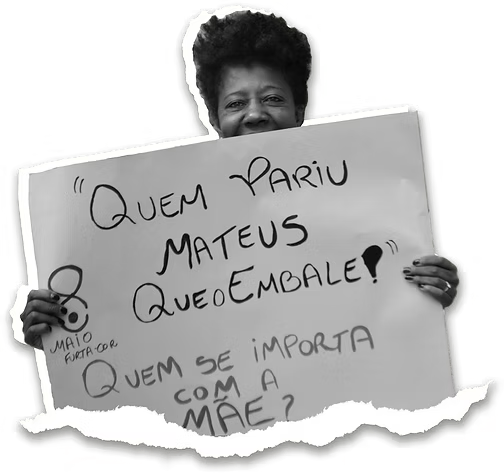 "QUEM PARIU
MATEUS
QUE O EMBALE!"
MAIO
FURTA-COR
QUEM SE IMPORTA
COM A
MÃE?